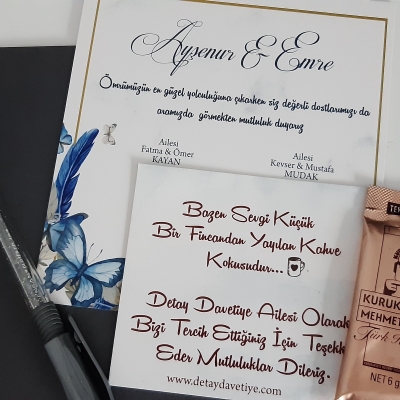 Ayşenur & Emre
Ömrümüzün en güzel yolculuğuna çıkarken siz değerli dostlarımızı da
aramızda görmekten mutluluk duyarız
Ailesi
Fatma & Ömer
KAYAN
Ailesi
Kevser & Mustafa
MUDAK
Bazen Sevgi Küçük
Bir Fincandan Yayılan Kahve
Kokusudur...
Detay Davetiye Ailesi Olarak
Bizi Tercih Ettiğiniz İçin Teşekk
Eder Mutluluklar Dileriz.
www.detaydavetiye.com
KURUK
MEHMET
Türk
Net 6 g